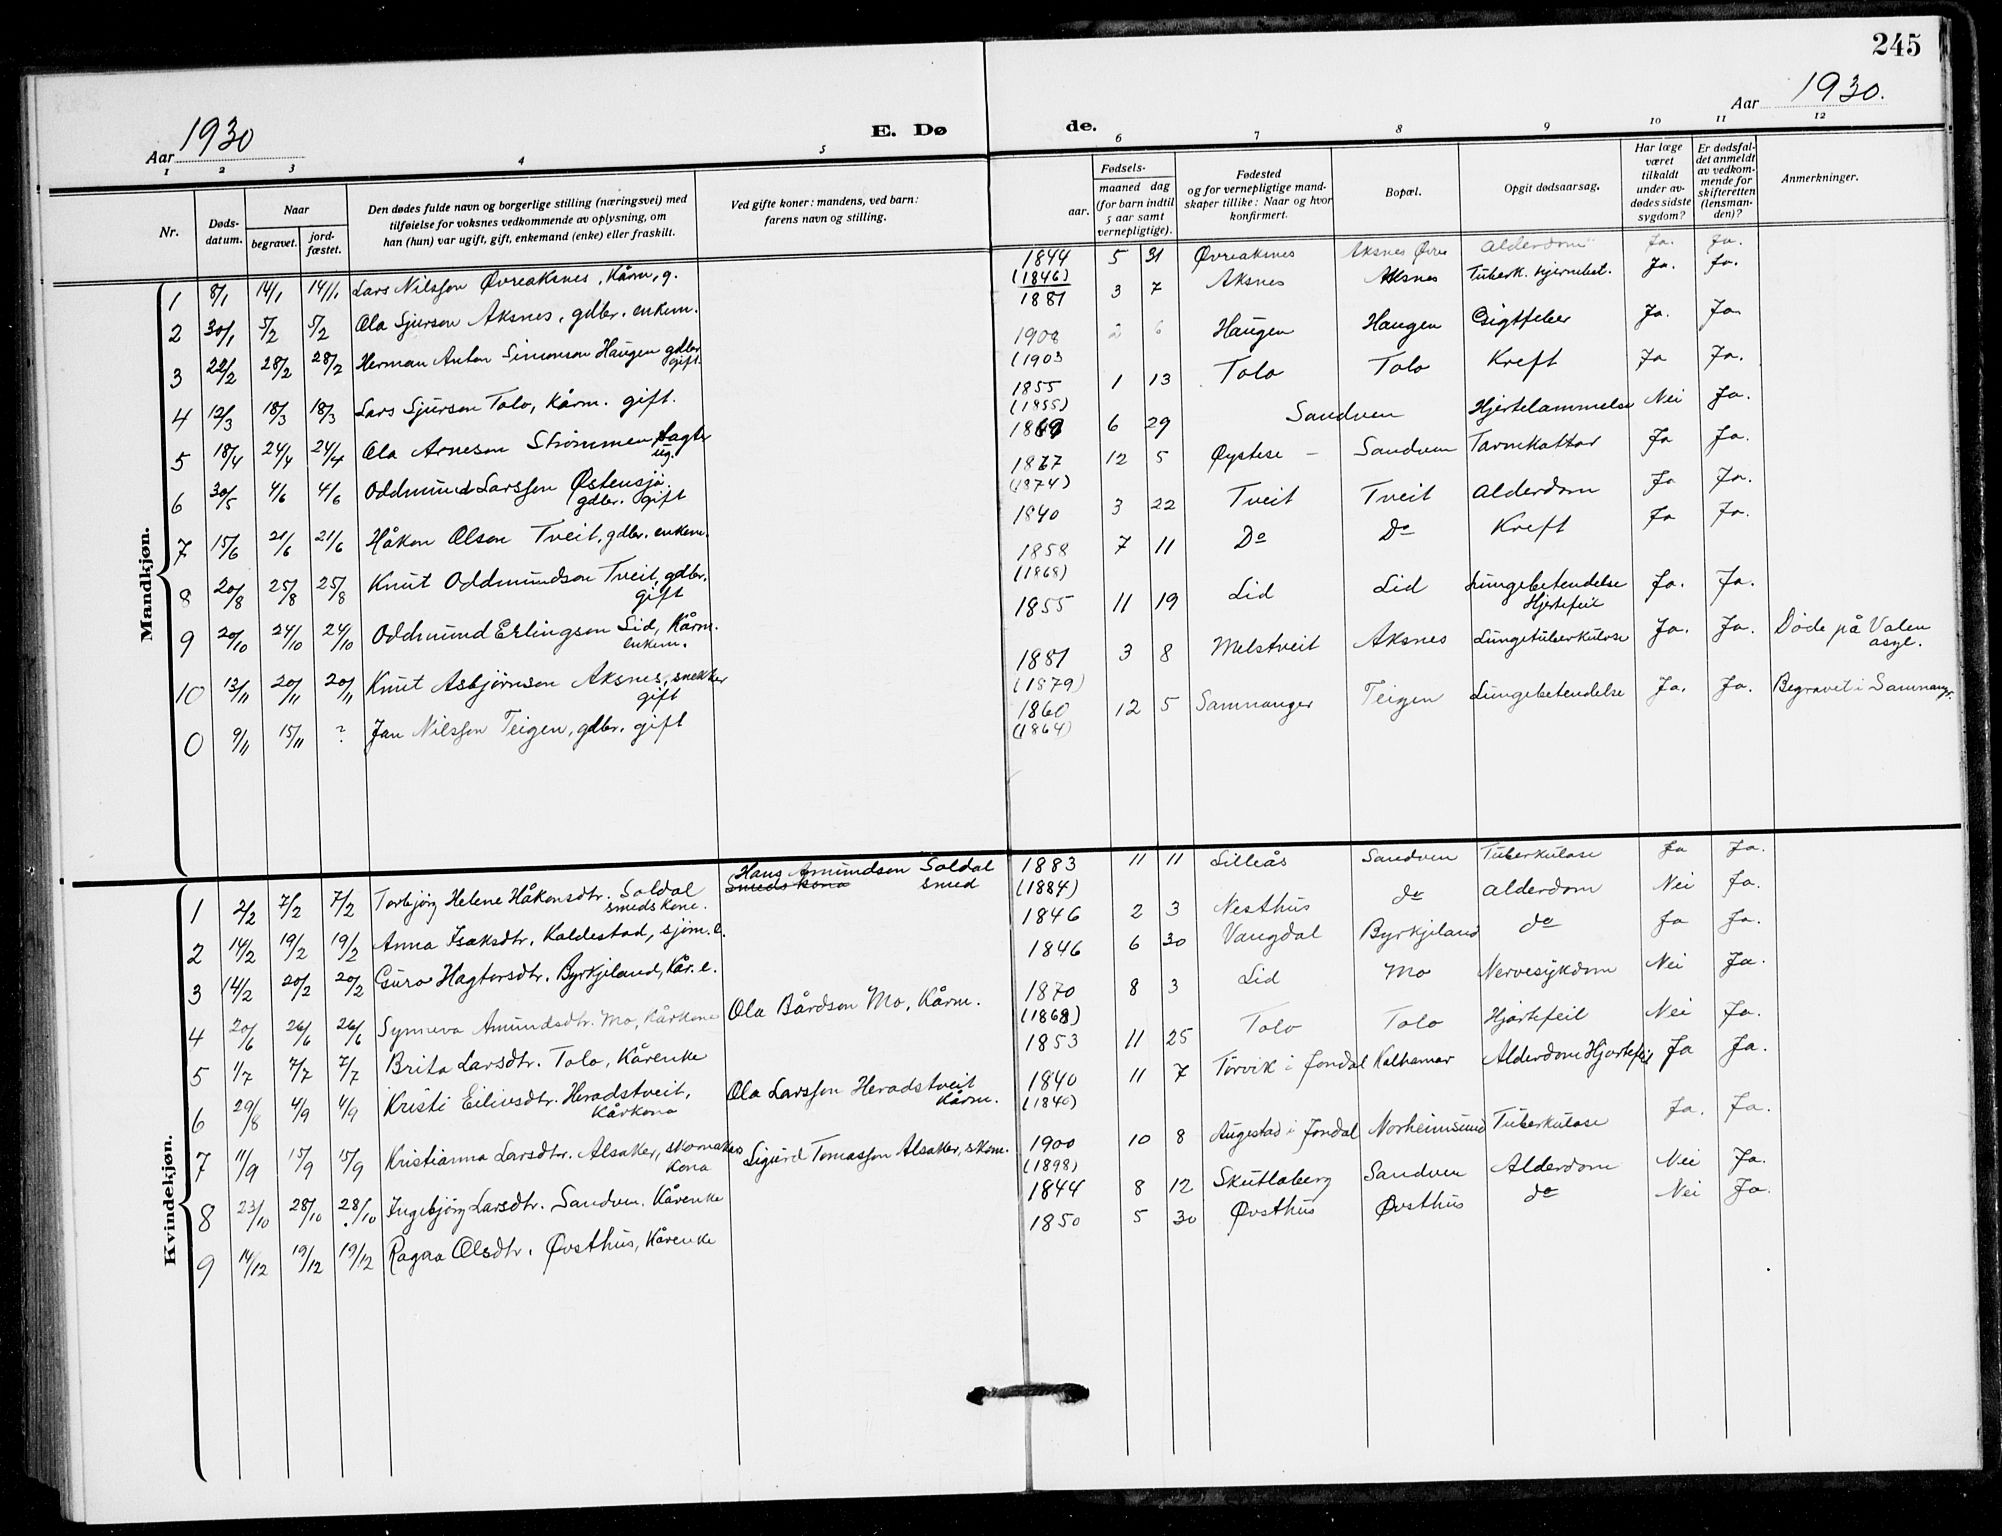 245
Aar 1930
E. Døde.
Aar 1930.
1 2 3 4 5 6 7 8 9 10 11 12
Nr.
Døds-
datum.
Naar
begravet.
jord-
fæstet.
Den dødes fulde navn og borgerlige stilling (næringsvei) med
tilføielse for voksnes vedkommende av oplysning, om
han (hun) var ugift, gift, enkemand (enke) eller fraskilt.
Ved gifte koner: mandens, ved barn:
farens navn og stilling.
Fødsels-
aar.
maaned dag
(for barn indtil
5 aar samt
vernepligtige).
Fødested
og for vernepligtige mand-
skaper tillike: Naar og hvor
konfirmert.
Bopæl.
Opgit dødsaarsag.
Har læge
været
tilkaldt
under av-
dødes sidste
sygdom?
Er dødsfal-
det anmeldt
av vedkom-
mende for
skifteretten
(lensman-
den)?
Anmerkninger.
Mandkjøn.
1 8/1 14/1 14/1 Lars Nilssen Øvreaksnes, Kårm, g. 1844 (1846) 5 31 Øvreaksnes Aksnes Øvre Alderdom Ja. Ja.
2 30/1 5/2 5/2 Ola Sjurson Aksnes, gdbr. enkem. 1881 3 7 Aksnes Aksnes Tuberk. hjernebet. Ja. Ja.
3 22/2 28/2 28/2 Herman Anton Simonson Haugen gdbr. gift. 1908 (1903 2 6 Haugen Haugen Gigtfeber Ja. Ja.
4 12/3 18/3 18/3 Lars Sjurson Tolo, Kårm. gift. 1855 (1855) 1 13 Tolo Tolo Kreft Ja Ja.
5 18/4 24/4 24/4 Ola Arneson Strømmen, ug. 6 29 Sandven Hjertelammelse Nei Ja.
6 30/5 4/6 4/6 Oddmund Larssen Østensjø. gdbr. gift 1877 (1874) 12 5 Øystese – Sandven Tarmkattar Ja Ja.
7 15/6 21/6 21/6 Håkon Olson Tveit, gdbr. enkem. 1840 3 22 Tveit Tveit Alderdom Ja Ja.
8 20/8 25/8 25/8 Knut Oddmundson Tveit, gdbr. gift 1858 (1868) 7 11 Do Do Kreft Ja Ja.
9 20/10 24/10 24/10 Oddmund Erlingson Lid, Kårm. enkem. 1855 11 19 Lid Lid Lungebetendelse Hjertefeil Ja. Ja.
10 13/11 20/11 20/11 Knut Asbjørnson Aksnes, snekker gift 1881 (1879) 3 8 Melstveit Aksnes Lungetuberkulose Ja. Ja. Døde på Valen asyl.
0 9/11 15/11 ? Jan Nilssen Teigen, gdbr. gift 1860 (1864) 12 5 Samnanger Teigen Lungebetendelse Ja. Ja. Begravet i Samnanger.
Kvindekjøn.
1 2/2 7/2 7/2 Torbjørg Helene Håkonsdtr. Soldal smedskone. Hans Amundsen Soldal smeds kona smed 1883 (1884) 11 11 Lilleås Sandven Tuberkulose Ja Ja.
2 14/2 19/2 19/2 Anna Isaksdtr. Kaldestad, sjøm. e. 1846 2 3 Nesthus do Alderdom Nei Ja.
3 14/2 20/2 20/2 Guro Hagtorsdtr. Byrkjeland, Kår. e. 1846 6 30 Vangdal Byrkjeland do Ja Ja.
4 20/6 26/6 26/6 Synneva Amundsdtr. Mo, Kårkone Ola Bårdsen Mo, Kårm. 1870 (1868) 8 3 Lid Mo Nervesykdom Nei Ja.
5 1/7 7/7 7/7 Brita Larsdtr. Tolo, Kårenke 1853 11 25 Tolo Tolo Hjartefeil Nei Ja.
6 29/8 4/9 4/9 Kristi Eilivsdtr. Heradstveit, Kårkona Ola Larssen Heradstveit Kårm. 1840 (1840) 11 7 Torvik i Jondal Kalhamar Alderdom Hjartefeil Ja Ja.
7 11/9 15/9 15/9 Kristianna Larsdtr. Alsaker, skomakar kona Sigurd Tomassen Alsaker, skom. 1900 (1898) 10 8 Augestad i Jondal Norheimsund Tuberkulose Ja. Ja.
8 23/10 28/10 28/10 Ingebjørg Larsdtr. Sandven. Kårenke 1844 8 12 Skutlaberg Sandven Alderdom Nei Ja.
9 14/12 19/12 19/12 Ragna Olsdtr. Øvsthus, Kårenke 1850 5 30 Øvsthus Øvsthus do Nei Ja.